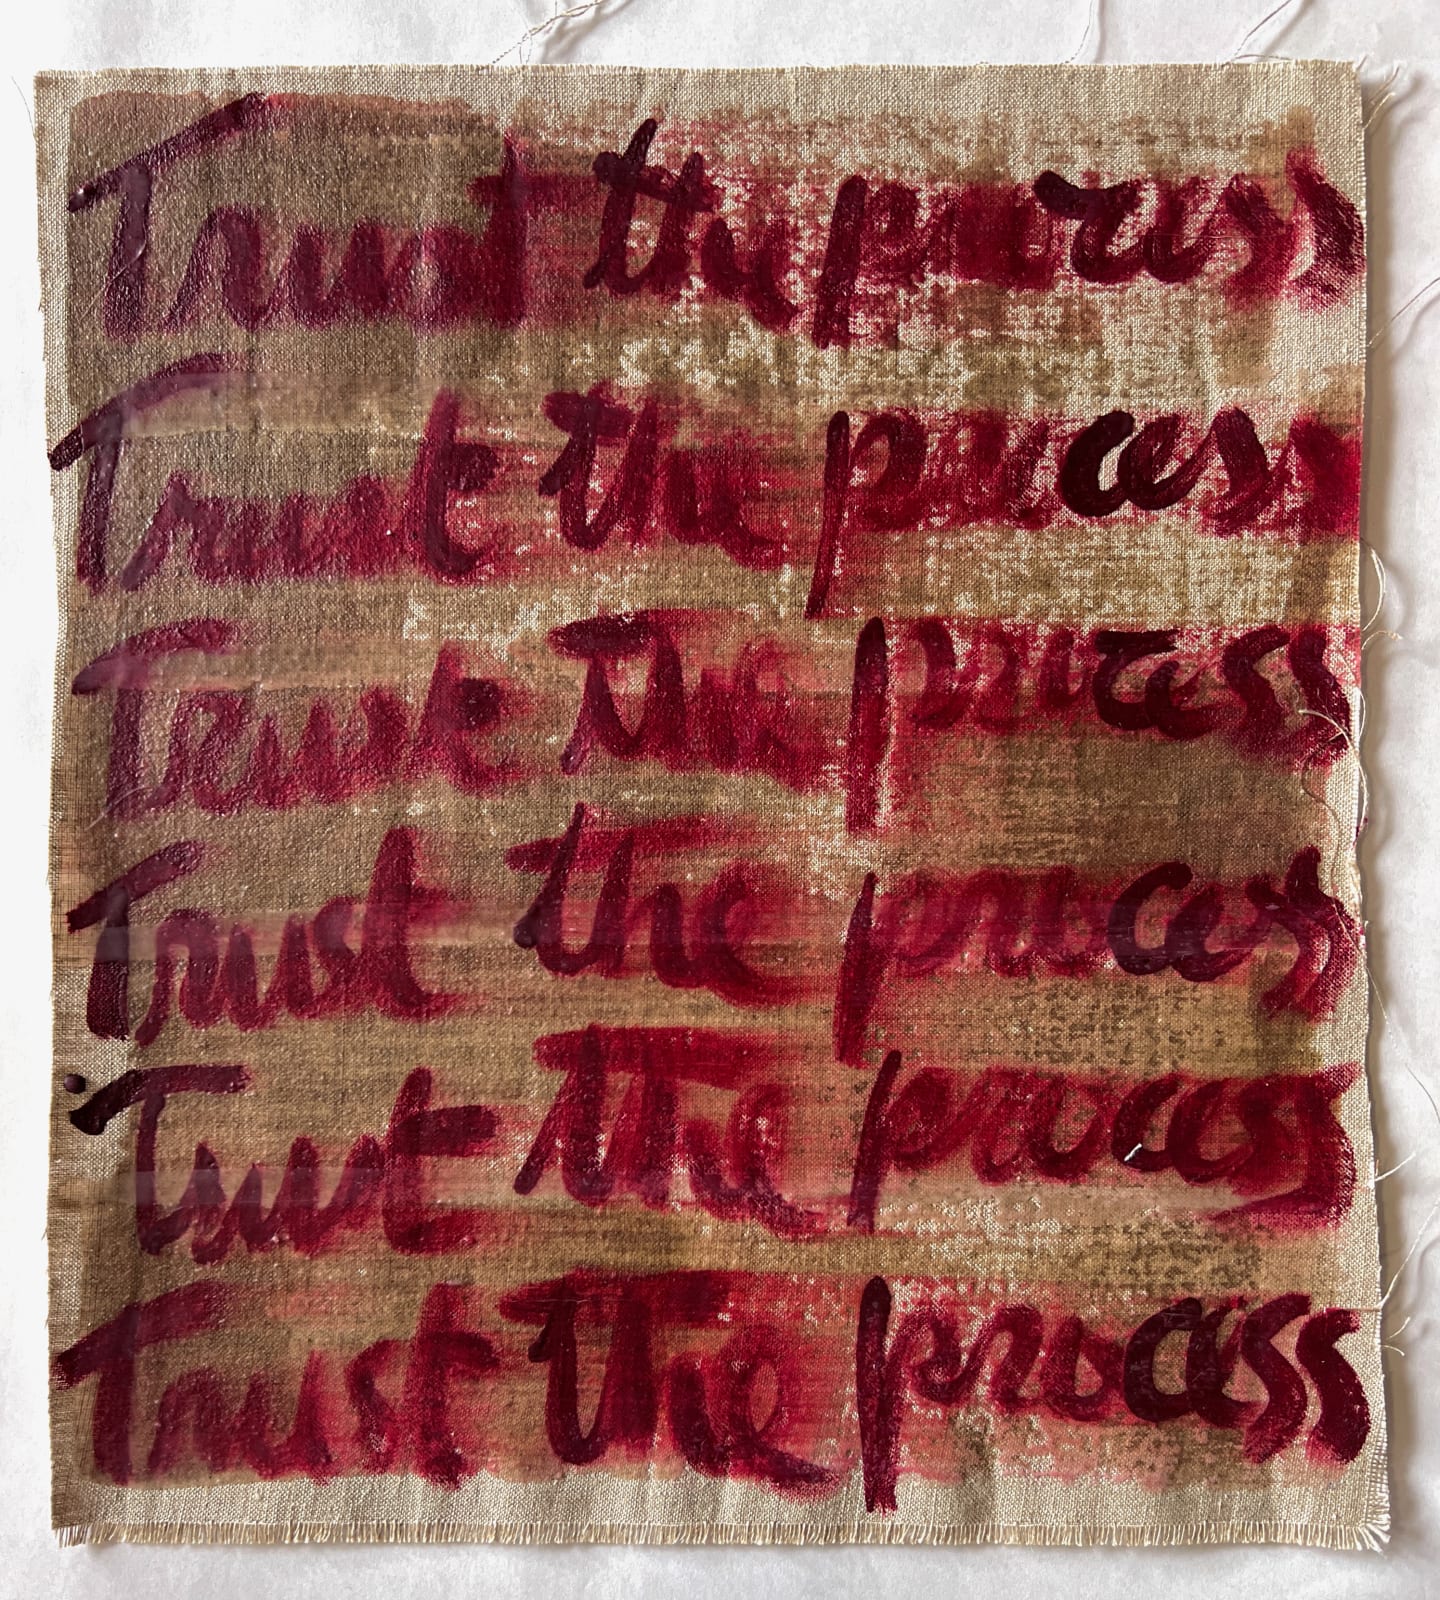 Trust the process
Trust the process
Trust the process
Trust the process
Trust the process
Trust the process